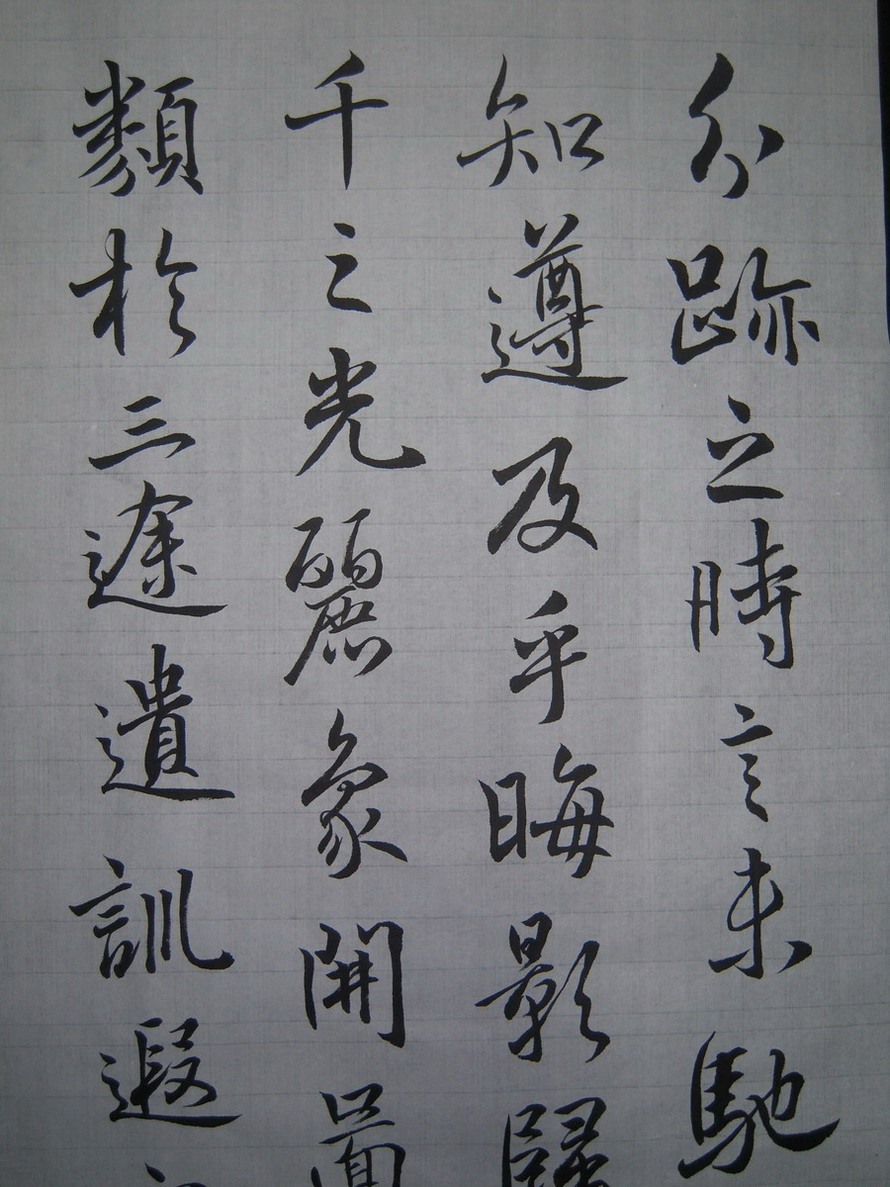 分跡之時言未馳
知遵及乎晦影歸
千之光麗象開圖
類於三途遺訓遐